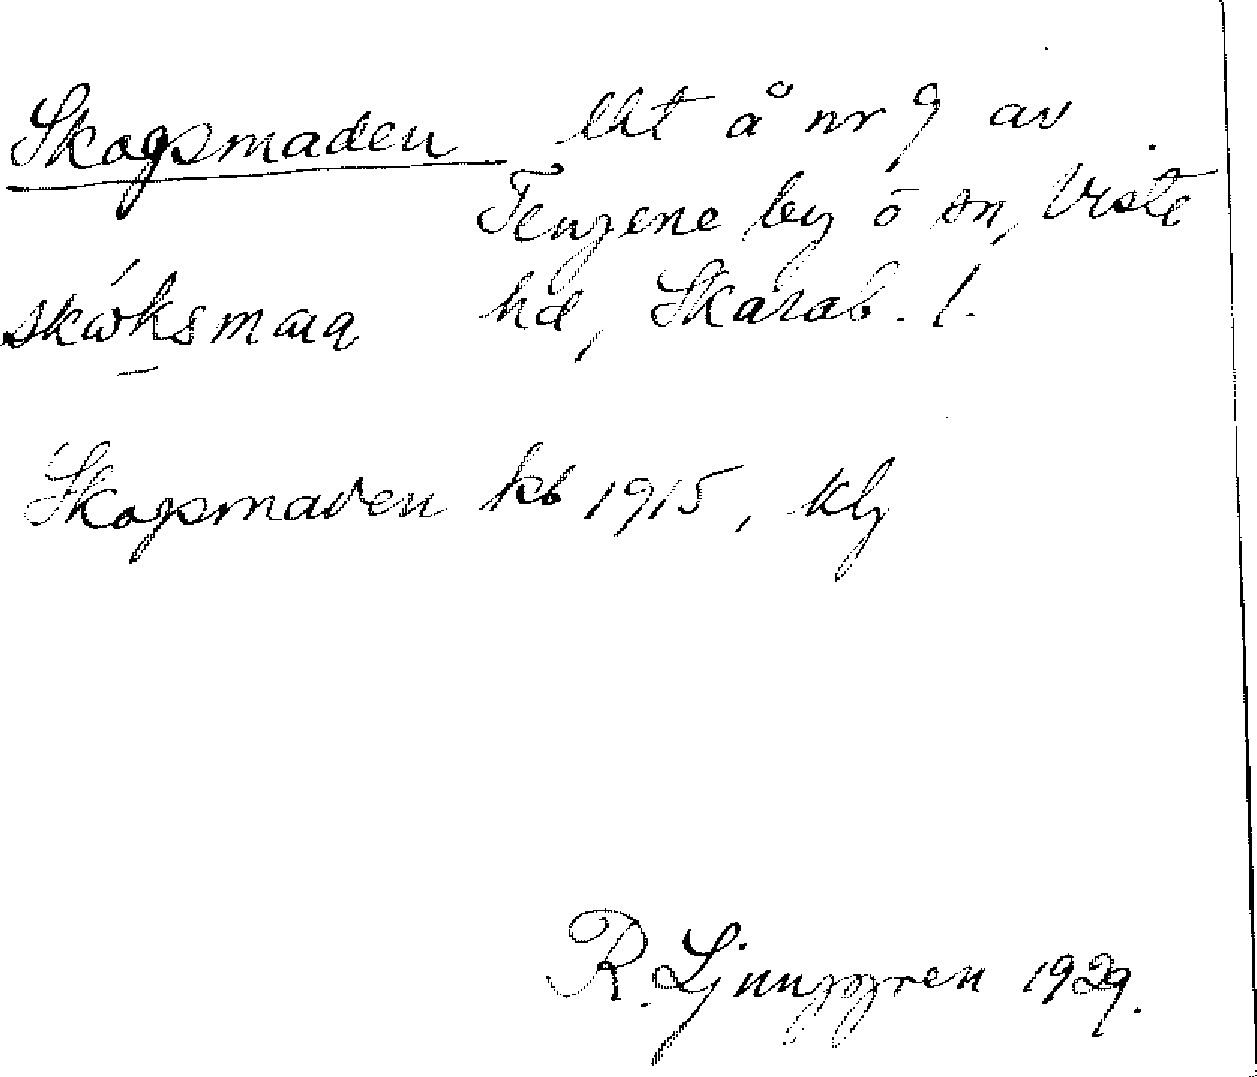 Skogsmaden lht å nr 9 av
Tengene by o sn, Viste
hd, Skarab. l.
Skogsmaden kb 1915, klg
R. Ljunggren 1929.